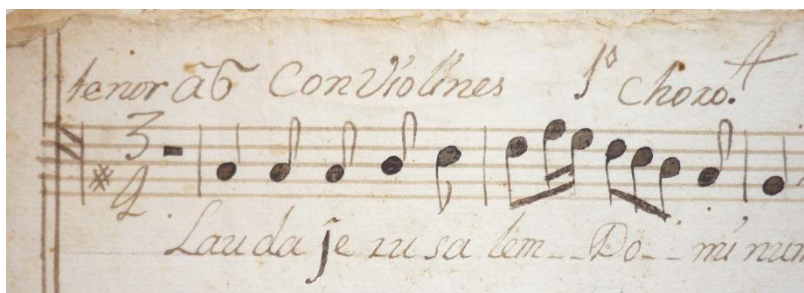 tenor a 6 Con Violines 1º Choro. A
3
2
Lauda je ru sa lem_ _ Do_ _ mi num